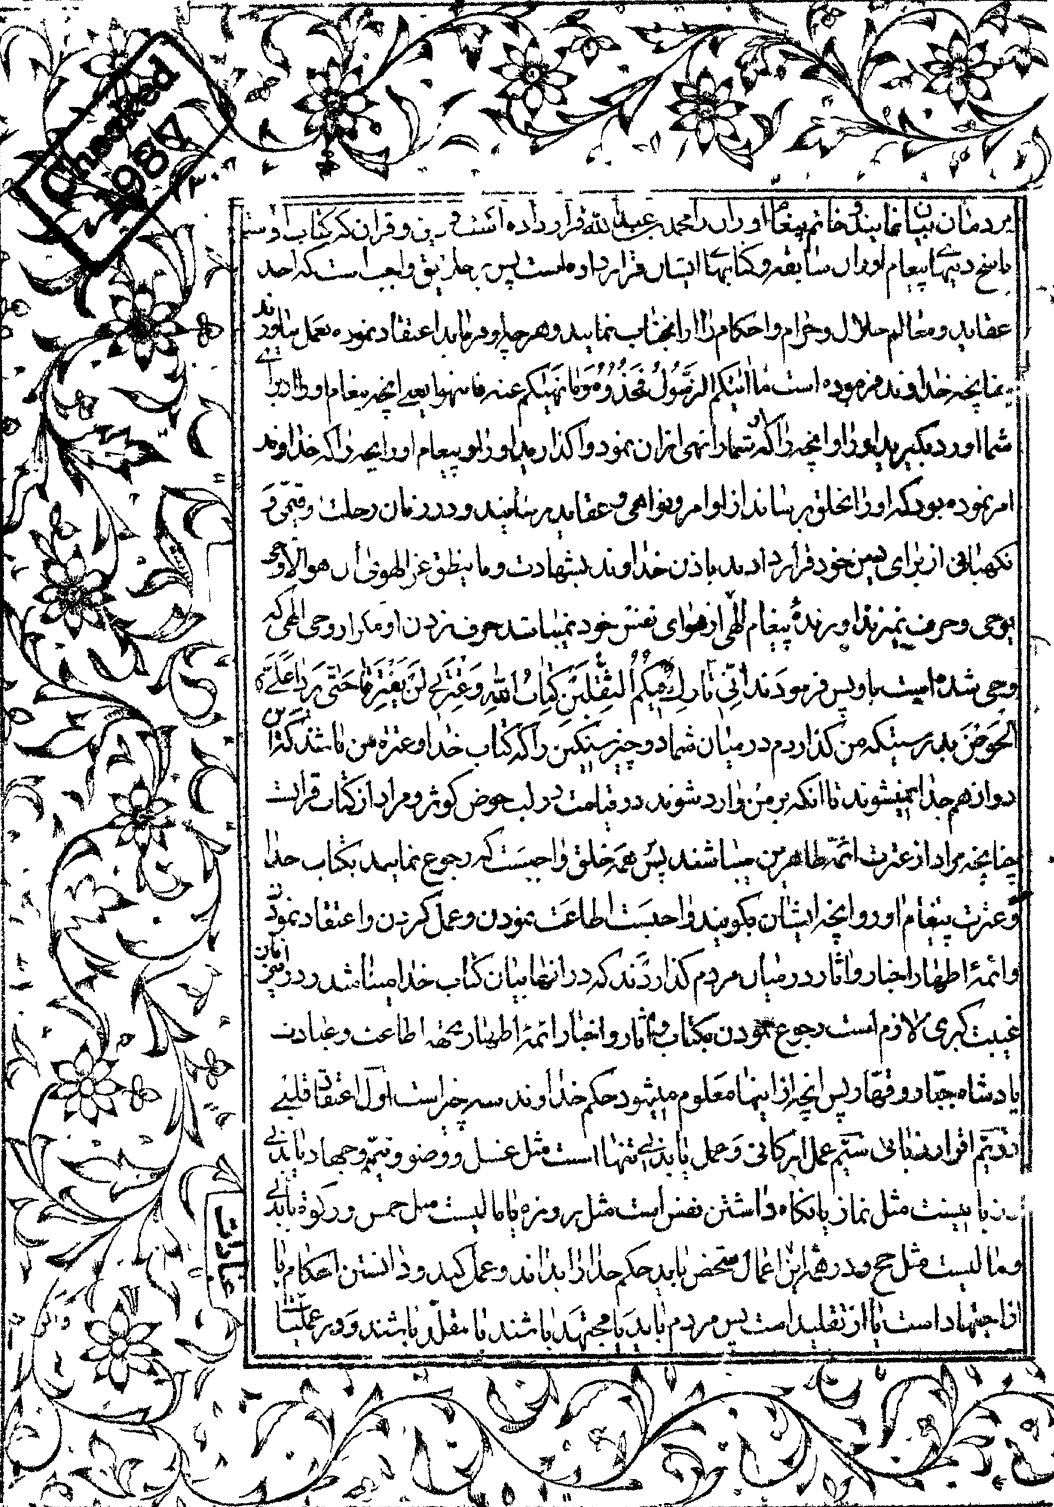 Checked
1987
بردمان بیان نمایند و خاتم پیغام اوران را محمد بن عبدالله قرار داده است و دین و قران که کتاب اوست
ناسخ دینهای پیغام اوران سابقه و کتابهای ایشان قرار داده است پس بر خلایق واجب است که اخذ
عقاید و معالم حلال و حرام و احکام را از انجناب نمایند و هر چه او فرماید اعتقاد نموده بعمل بیاورند
چنانچه خداوند فرموده است ما اتیکم الرسول فخذوه و ما نهیکم عنه فانتهوا یعنی انچه پیغام اور از برای
شما اورد بگیرید او را و انچه را که شما را نهی از ان نمود واگذارید او را و پیغام اور انچه را که خداوند
امر نموده بود که او را بخلق برساند از اوامر و نواهی و عقاید رسانیدند و در زمان رحلت وقیمی و
نگهبانی از برای دین خود قرار دادند باذن خداوند بشهادت و ما ینطق عن الهوی ان هو الا وحی
یوحی و حرف نمیزند اورنده پیغام الهی از هوای نفس خود نمیباشد حرف زدن او مگر از وحی الهی که
وحی شده است باو پس فرمودند انی تارک فیکم الثقلین کتاب الله و عترتی لن یفترقا حتی یردا علی
الحوض بدرستیکه من گذاردم در میان شما دو چیز سنگین را که کتاب خدا و عتره من باشد که این
دو از هم جدا نمیشوند تا انکه بر من وارد شوند در قیامت در لب حوض کوثر و مراد از کتاب قرانست
چنانچه مراد از عترت ائمه طاهرین میباشند پس همه خلق واجبست که رجوع نمایند بکتاب خدا
و عترت پیغام اور و انچه ایشان بگویند واجبست اطاعت نمودن و عمل کردن و اعتقاد نمودن
و ائمه اطهار اخبار و اثار در میان مردم گذاردند که در انها بیان کتاب خدا میباشد در زمان
غیبت کبری لازم است رجوع نمودن بکتاب و اثار و اخبار ائمه اطهار بجهه اطاعت و عبادت
پادشاه جبار و قهار پس انچه از اینها معلوم میشود حکم خداوند سه چیز است اول اعتقاد قلبی
دویم اقرار لسانی سیم عمل ارکانی و عمل یا بدنی تنها است مثل غسل و وضو و تیمم و جهاد یا بدنی
با نیت مثل نماز یا نگاه داشتن نفس است مثل روزه یا مالیست مثل خمس و زکوة یا بدنی
و مالیست مثل حج و در همه این اعمال شخص باید حکم خدا را بداند و عمل کند و دانستن احکام یا
از اجتهاد است یا از تقلید است پس مردم باید یا مجتهد باشند یا مقلد باشند و در عملیات
عبادات